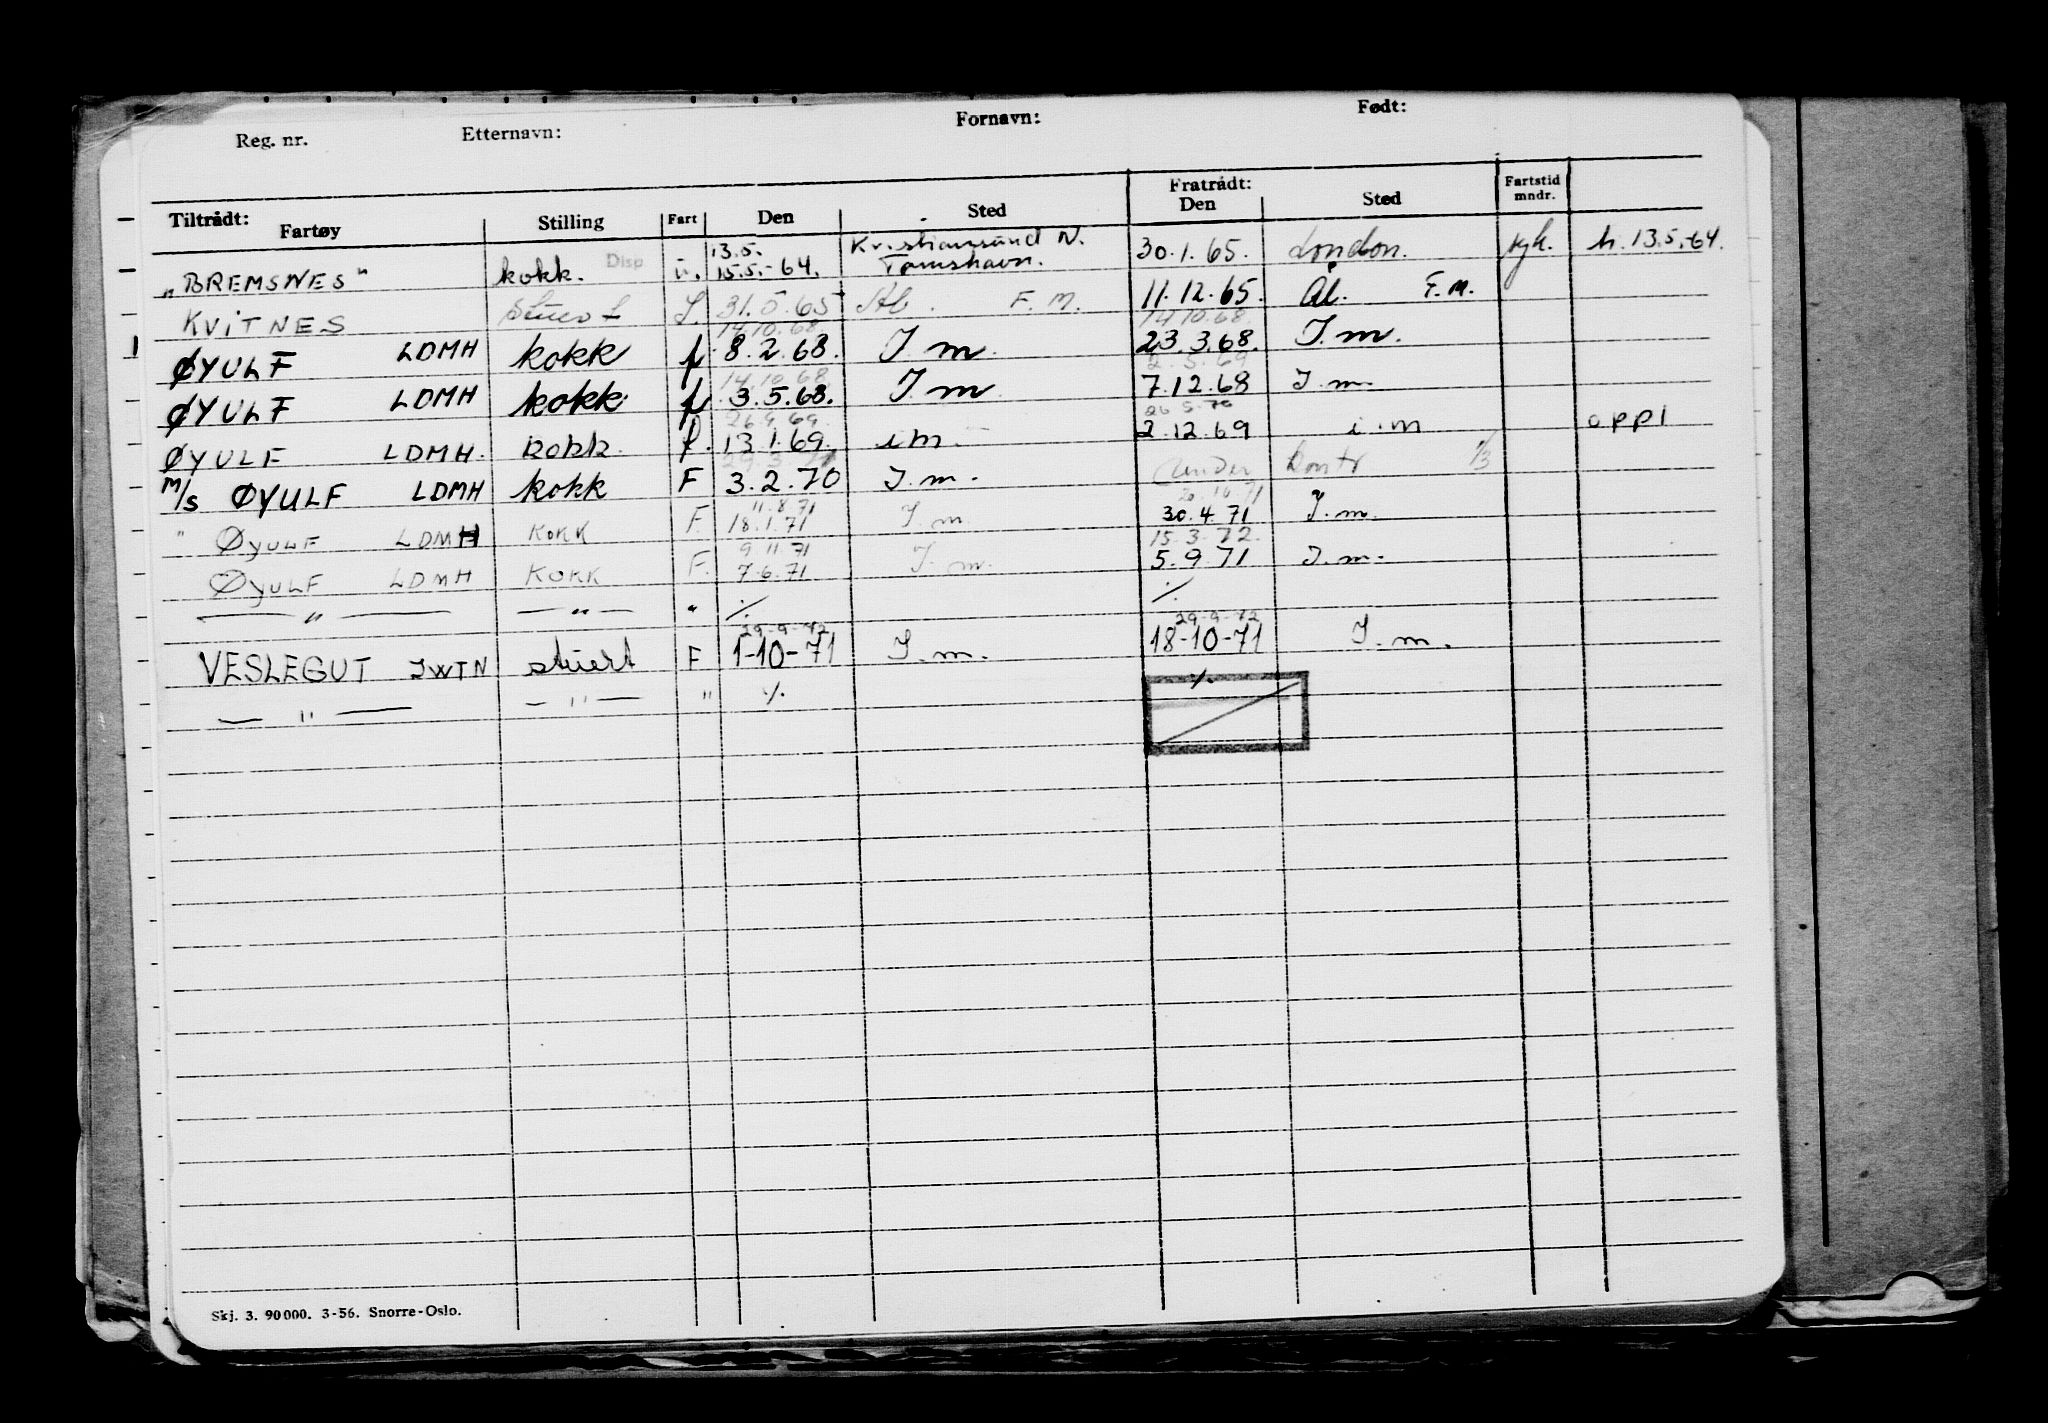 Reg. nr. Etternavn: Fornavn: Født:
Tiltrådt: Fratrådt: Fartstid mndr.
Fartøy Stilling Fart Den Sted Den Sted
13.5. Kristiansund N.
"BREMSNES" kokk. Disp u. 15.5.-64. Tornshavn. 30.1.65. London. syk. h. 13.5.-64.
KViTNES Stuert 31.5.65 F.M. 11.12.65. Ål. F.M.
14.10.68 14.10.68.
ØYULF LDMH kokk f 8.2.68. I.m. 23.3.68. I.m.
14.10.68. 2.5.69
ØYULF LDMH kokk f 3.5.68. I.m 7.12.68 I.m.
26.9.69. 26.5.70
ØYULF LDMH. kokk. f. 13.1.69. i m 2.12.69 i.m oppl
M/S ØYULF LDMH kokk F 3.2.70 I.m. under
11.8.71
" ØYULF LDMH KOKK F. 18.1.71 I.m. 30.4.71 I.m.
9.11.71 15.3.72.
ØYULF LDMH KOKK F. 7.6.71 I.m. 5.9.71 I.m.
— " — — " — " ./. ./.
29-9-72 29-9-72
VESLEGUT JWTN stuert F 1-10-71 I.m. 18-10-71 I.m.
— " — — " — " ./. ./.
Skj. 3. 90000. 3-56. Snorre-Oslo.